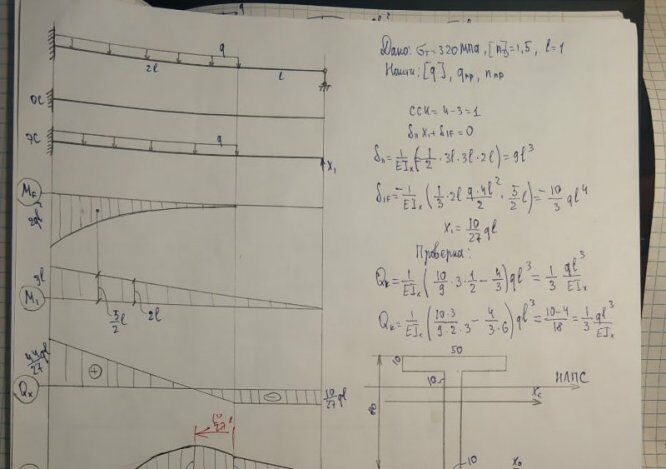 q
2l
l
ОС
ЭС
q
X₁
M_F
2ql²
3l
M₁
5/2 l
2l
44/27 ql
Qx
+
−
10/27 ql
Дано: σт=320МПа, [nт]=1,5, l=1
Найти: [q], qпр, nпр
ССН=4-3=1
δ₁₁X₁+δ₁F=0
δ₁₁=1/EIx(1/2·3l·3l·2l)=9l³/EIx
δ₁F=-1/EIx(1/3·2l q·4l²/2·5/2 l)=-10/3 ql⁴
X₁=10/27 ql
Проверка:
Qк=1/EIx(10/9·3·1/2-4/3)ql³=1/3 ql³/EIx
Qк=1/EIx(20·3/9·2·3-4/3·6)ql³=10-4/18=1/3 ql³/EIx
50
10
10
НЛПС
Xc
10